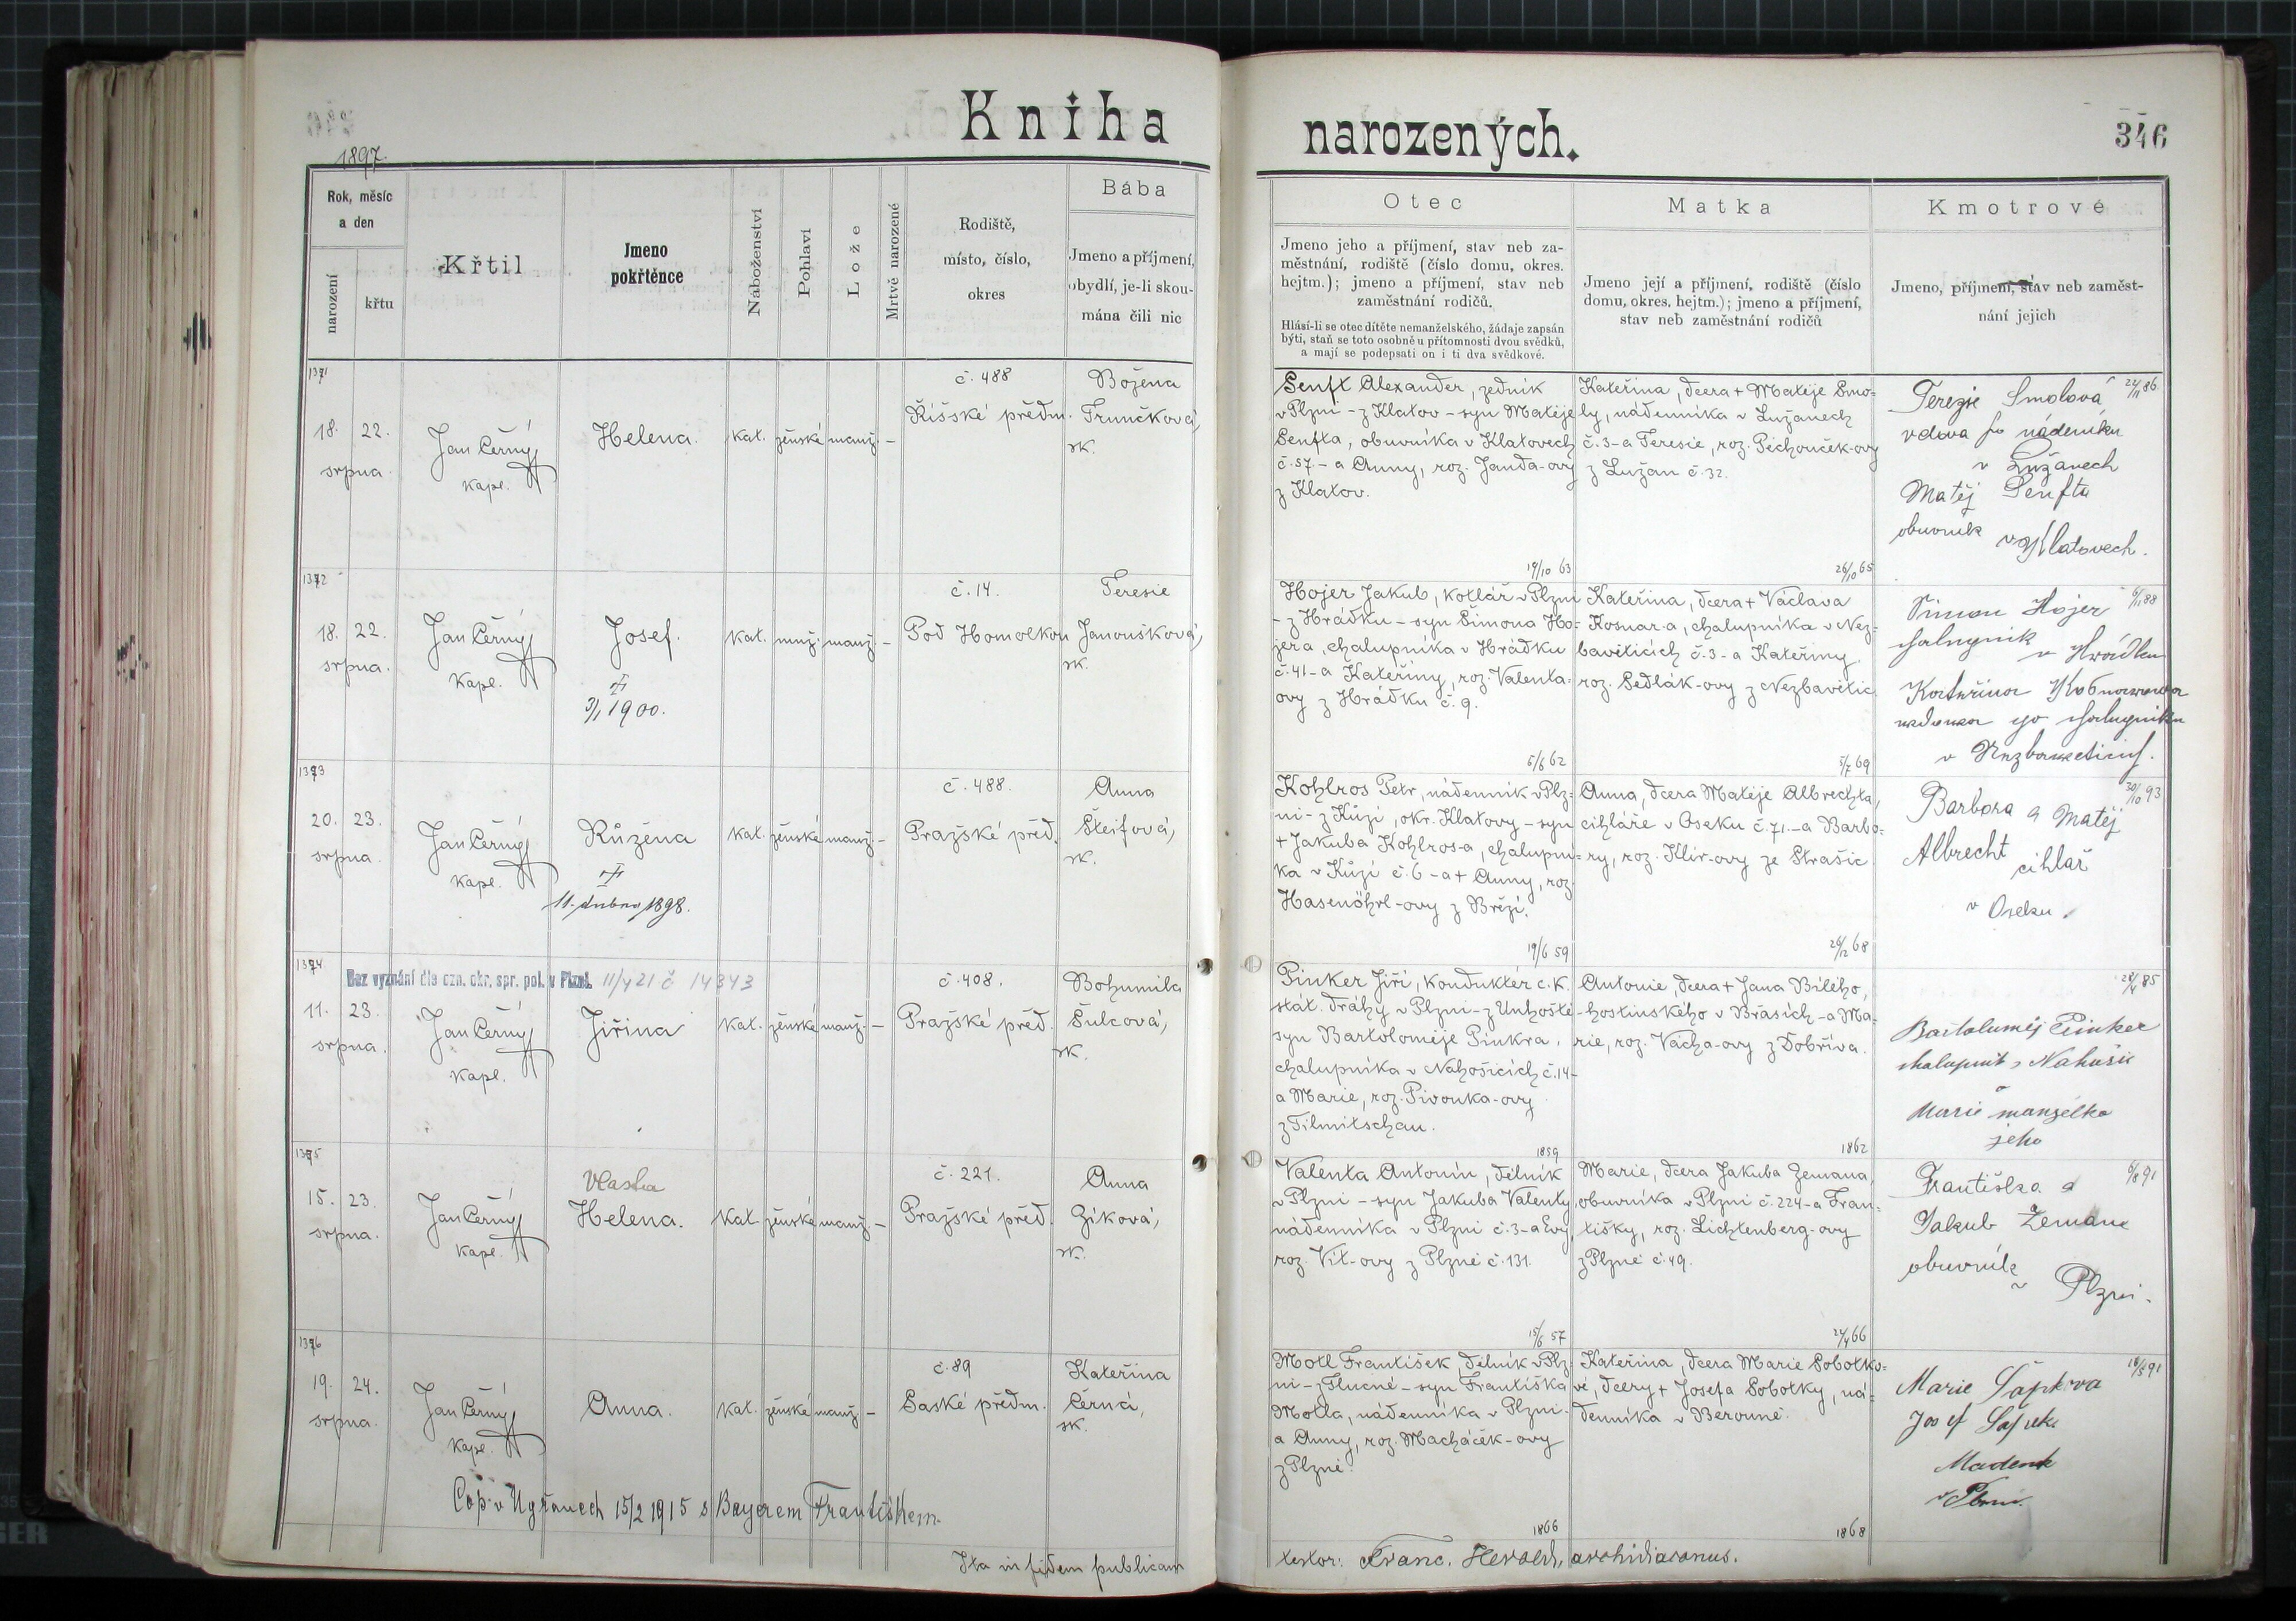 Kniha
narozených.
346
1897.
Rok, měsíc
a den
narození
křtu
Křtil
Jmeno
pokřtěnce
Náboženství
Pohlaví
Lože
Mrtvě narozené
Rodiště,
místo, číslo,
okres
Bába
Jmeno a příjmení,
obydlí, je-li skou-
mána čili nic
Otec
Jmeno jeho a příjmení, stav neb za-
městnání, rodiště (číslo domu, okres.
hejtm.); jmeno a příjmení, stav neb
zaměstnání rodičů.
Hlásí-li se otec dítěte nemanželského, žádaje zapsán
býti, staň se toto osobně u přítomnosti dvou svědků,
a mají se podepsati on i ti dva svědkové.
Matka
Jmeno její a příjmení, rodiště (číslo
domu, okres, hejtm.); jmeno a příjmení,
stav neb zaměstnání rodičů
Kmotrové
Jmeno, příjmení, stav neb zaměst-
nání jejich
1371
18. 22.
srpna.
Jan Černý
kapl.
Helena.
kat. ženské manž. –
č. 488
Říšské předm.
Božena
Trunečková,
zk.
Senft Alexander, zedník
v Plzni – z Klatov – syn Matěje
Senfta, obuvníka v Klatovech
č. 57 – a Anny, roz. Janda-ovy
z Klatov.
19/10 63
Kateřina, dcera + Matěje Smo-
ly, nádenníka v Lužanech
č. 3 – a Teresie, roz. Pechouček-ovy
z Lužan č. 32.
26/10 65
Terezie Smolová
vdova po nádeníku
v Lužanech
Matěj Senfta
obuvník v Klatovech.
1372
18. 22.
srpna.
Jan Černý
kapl.
Josef.
3/1 1900.
kat. muž. manž. –
č. 14.
Pod Homolkou
Teresie
Janoušková,
zk.
Hojer Jakub, kotlář v Plzni
– z Hrádku – syn Šimona Ho-
jera, chalupníka v Hrádku
č. 41 – a Kateřiny, roz. Valenta-
ovy z Hrádku č. 9.
5/6 62
Kateřina, dcera + Václava
Kosnar-a, chalupníka v Nez-
bavěticích č. 3 – a Kateřiny
roz. Sedlák-ovy z Nezbavětic.
5/7 69
Šimon Hojer
chalupník v Hrádku
Kateřina
po chalupníku
v
1373
20. 23.
srpna.
Jan Černý
kapl.
Růžena
11. dubna 1898.
kat. ženské manž. –
č. 488.
Pražské před.
Anna
Šteifová,
zk.
Kohlros Petr, nádenník v Plz-
ni – z Kůzí, okr. Klatovy – syn
+ Jakuba Kohlros-a, chalupní-
ka v Kůzí č. 6 – a + Anny, roz.
Hasenöhrl-ovy z Březí.
19/6 59
Anna, dcera Matěje Albrechta,
cihláře v Oseku č. 71. – a Barbo-
ry, roz. Klír-ovy ze Strašic
26/12 68
Barbora a Matěj
Albrecht
cihlář
v Oseku.
30/10 93
1374
Bez vyznání dle ozn. okr. spr. pol. v Plzni. 11/4 21 č 14343
11. 23.
srpna.
Jan Černý
kapl.
Jiřina
kat. ženské manž. –
č. 408.
Pražské před.
Bohumila
Šulcová,
zk.
Pinker Jiří, konduktér c. k.
stát. dráhy v Plzni – z Unhoště –
syn Bartoloměje Pinkra,
chalupníka v Nahošicích č. 14 –
a Marie, roz. Pivoňka-ovy
z Tilmitschau.
1859
Antonie, dcera + Jana Bílého,
hostinského v Brasích – a Ma-
rie, roz. Vácha-ovy z Dobříva.
1862
Bartoluměj Pinker
chalupník z Nahošic
a
Marie manželka
jeho
1375
15. 23.
srpna.
Jan Černý
kapl.
Vlasta
Helena.
kat. ženské manž. –
č. 221.
Pražské před.
Anna
Zíková,
zk.
Valenta Antonín, dělník
v Plzni – syn Jakuba Valenty,
nádenníka v Plzni č. 3 – a Evy,
roz. Vít-ovy z Plzně č. 131.
15/6 57
Marie, dcera Jakuba Zemana,
obuvníka v Plzni č. 224 – a Fran-
tišky, roz. Lichtenberg-ovy
z Plzně č. 49.
24/4 66
Františka a
Jakub Zeman
obuvník
v Plzni.
1376
19. 24.
srpna.
Jan Černý
kapl.
Anna.
kat. ženské manž. –
č. 89
Saské předm.
Kateřina
Černá,
zk.
Motl František, dělník v Plz-
ni – z Hlucné – syn Františka
Motla, nádenníka v Plzni
a Anny, roz. Macháček-ovy
z Plzně.
1866
Kateřina, dcera Marie Sobotko-
vé, dcery + Josefa Sobotky, ná-
denníka v Berouně.
1868
Marie
Josef
v Plzni.
Cop. v Ugřanech 15/2 1915 s Bayerem Františkem.
Ita in fidem publicam
testor: Franc. Herold, archidiaconus.